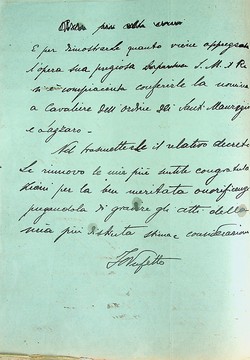 E per dimostrarle quanto viene apprezzata
l'opera sua preziosa S. M. il Re
si è compiaciuta conferirle la nomina
a Cavaliere dell'ordine dei Santi Maurizio
e Lazzaro.
Nel trasmetterle il relativo decreto
Le rinnovo le mie più sentite congratula
zioni per la ben meritata onorificenza
pregandola di gradire gli atti della
mia più distinta stima e considerazione
Il Prefetto